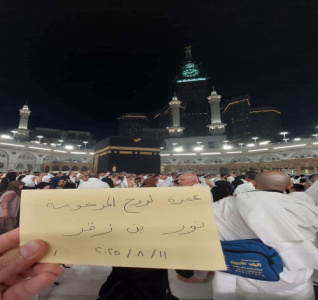 عمرة لروح المرحومة
نور بن زقر
٢٠٢٥/٠٨/١١